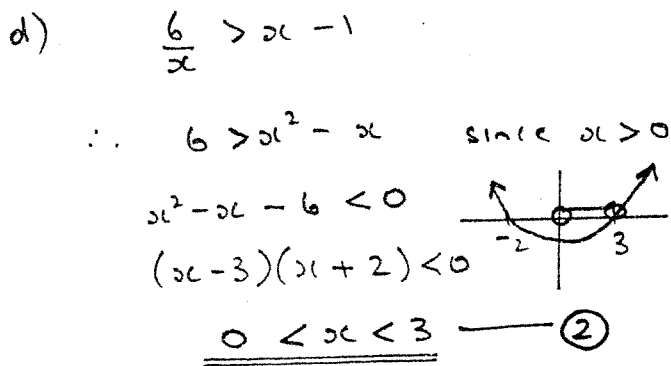 d) 6/x > x - 1
∴ 6 > x² - x since x > 0
x² - x - 6 < 0
(x - 3)(x + 2) < 0
-2 3
0 < x < 3 —— ②